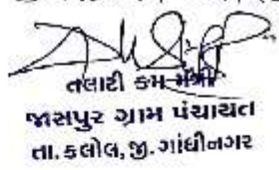 તલાટી કમ મંત્રી
જાસપુર ગ્રામ પંચાયત
તા. કલોલ, જી. ગાંધીનગર